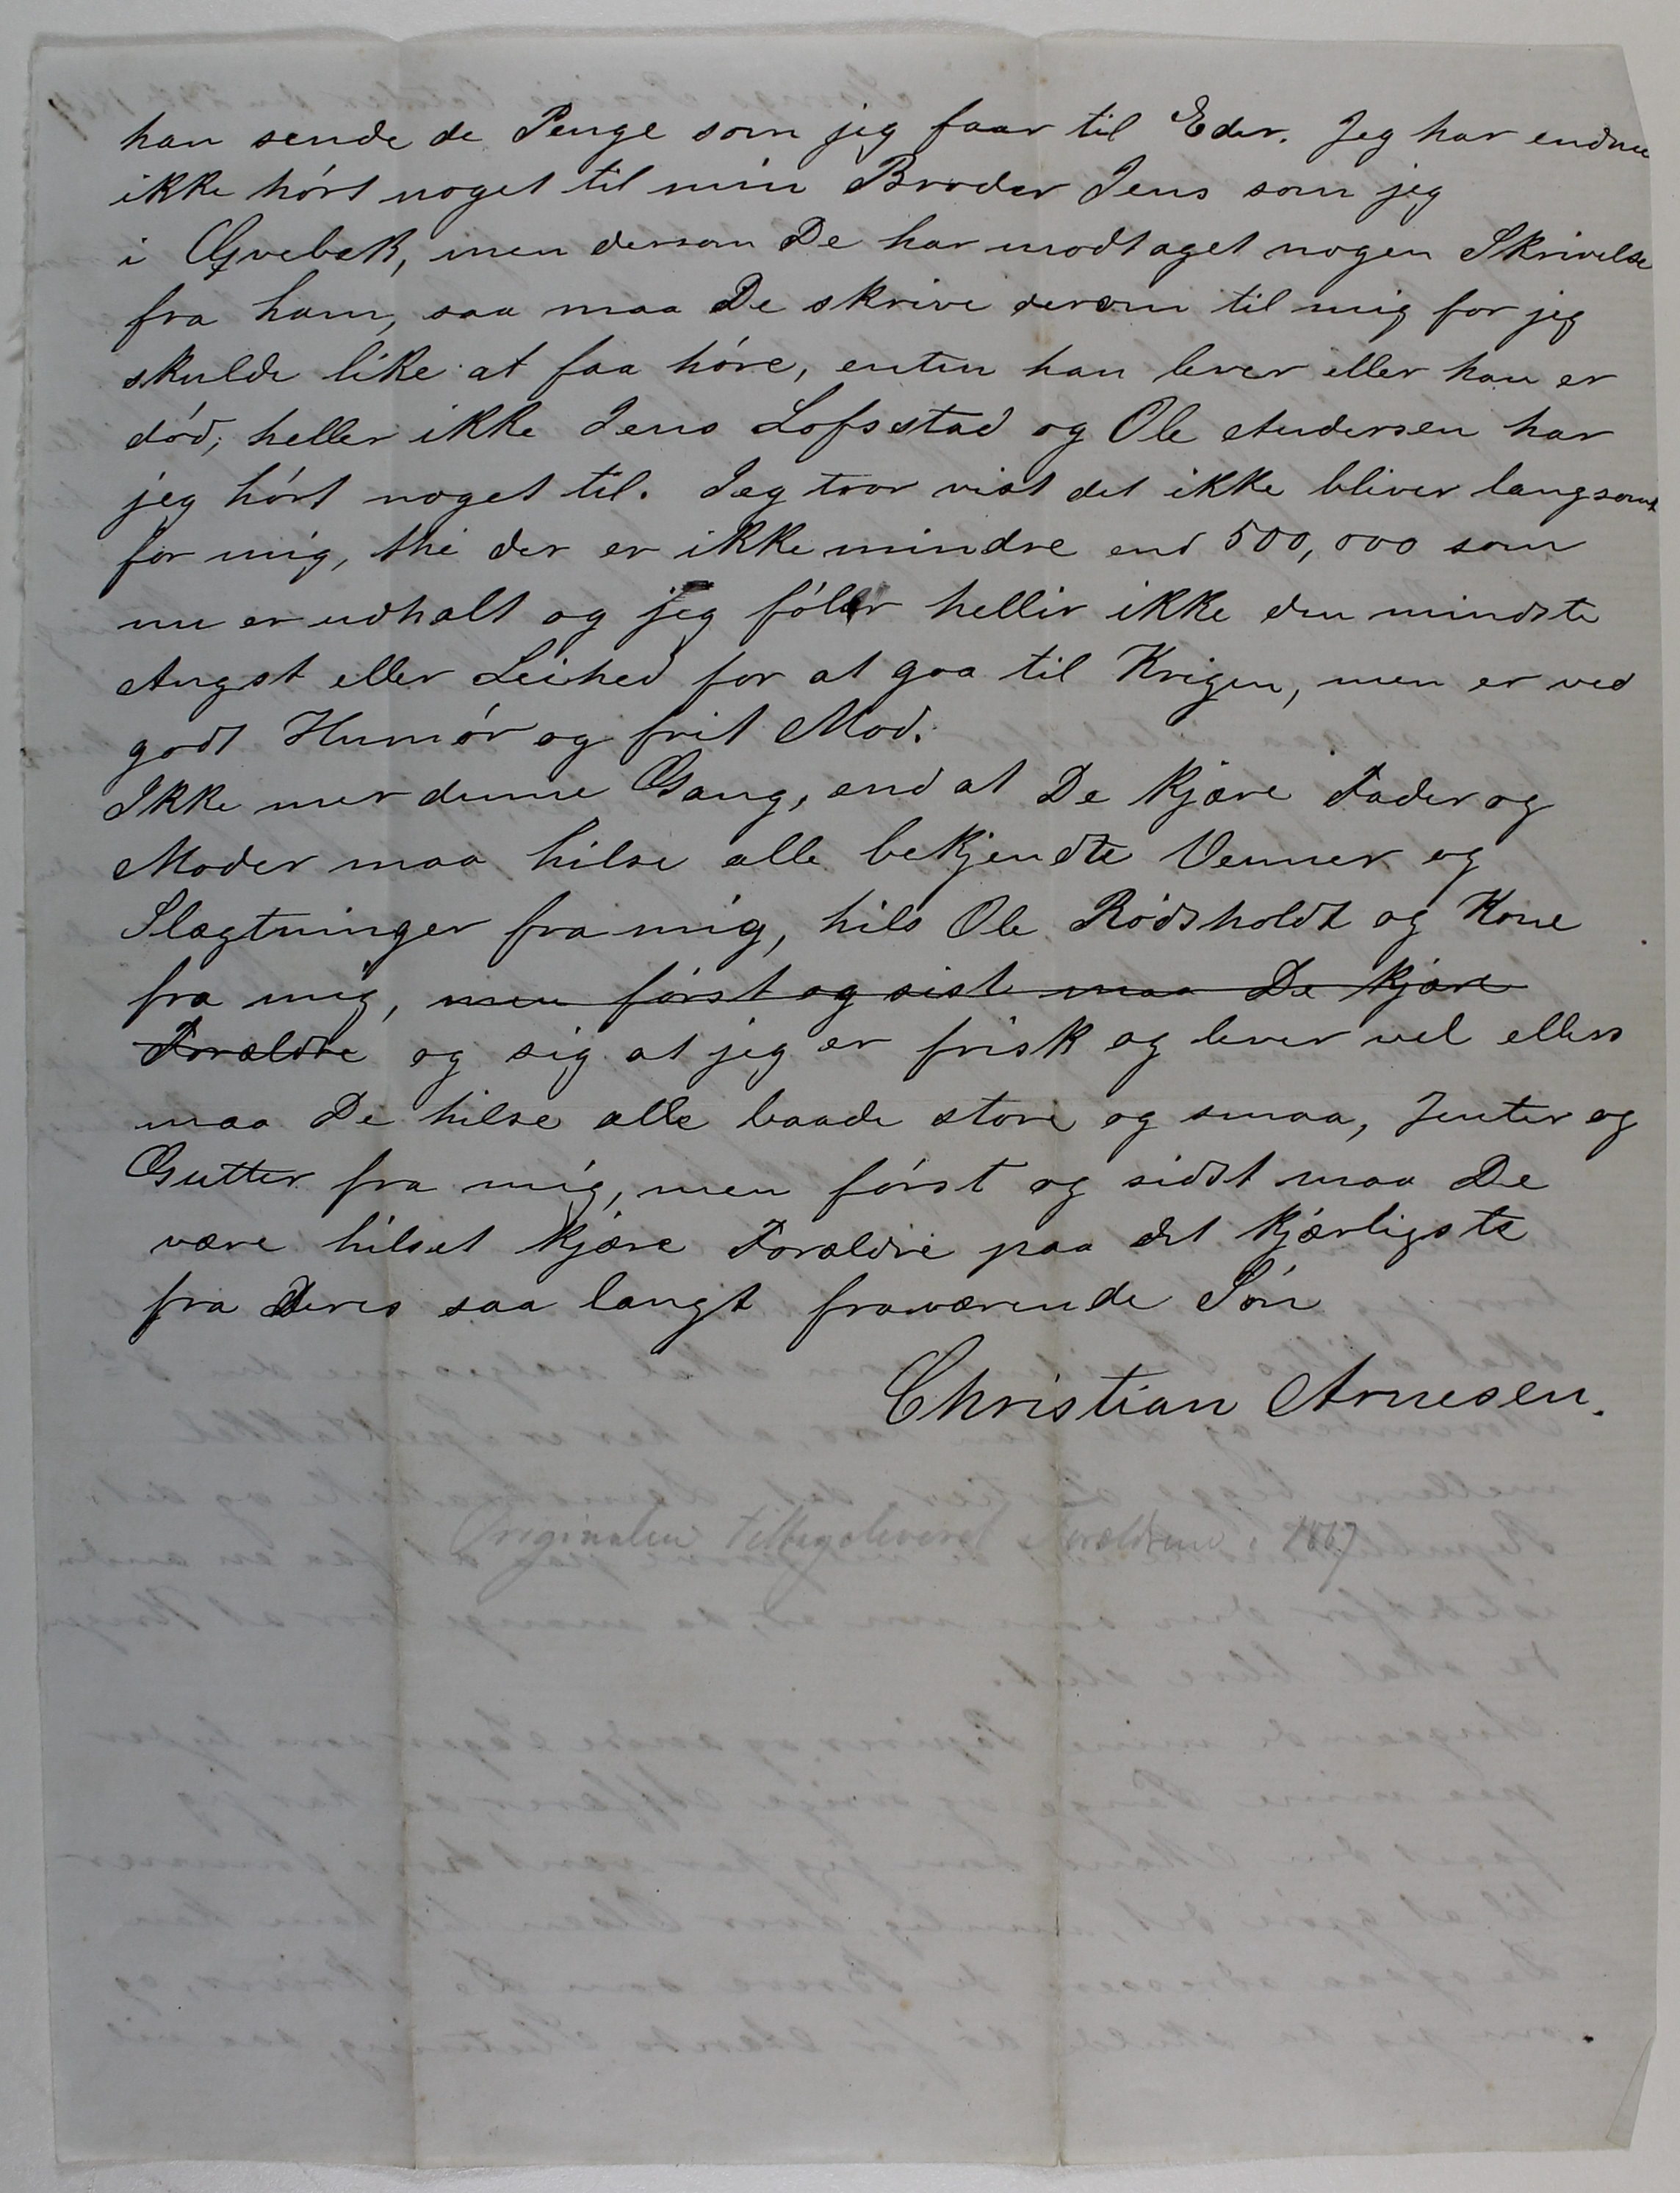 han sende de Penge som jeg faar til Eder. Jeg har endnu
ikke hórt noget til min Broder Jens som jeg
i Qvebek, men dersom De har modtaget nogen Skrivelse
fra ham, saa maa De skrive derom til mig for jeg
skulde like at faa hóre, enten han lever eller han er
dód, heller ikke Jens Lofsstad og Ole Andersen har
jeg hórt noget til. Jeg tror vist det ikke bliver langsomt
for mig, thi der er ikke mindre end 500,000 som
nu er udhalt og jeg fóler heller ikke den mindste
Angst eller Leihed for at gaa til Krigen, men er ved
godt Humór og frit Mod.
Ikke mer denne Gang, end at De kjære Fader og
Moder maa hilse alle bekjendte Venner og
Slægtninger fra mig, hils OleRódsholdt og Kone
fra mig, men fórst og sist maa De kjære
Forældre og sig at jeg er frisk og lever vel ellers
maa De hilse alle baade store og smaa, Jenter og
Gutter fra mig, men fórst og sidst maa De
være hilset kjære Forældre paa det kjærligste
fra Deres saa langt fraværende Són
Christian Arnesen.
Originalen tilbageleveret Forældrene 1867